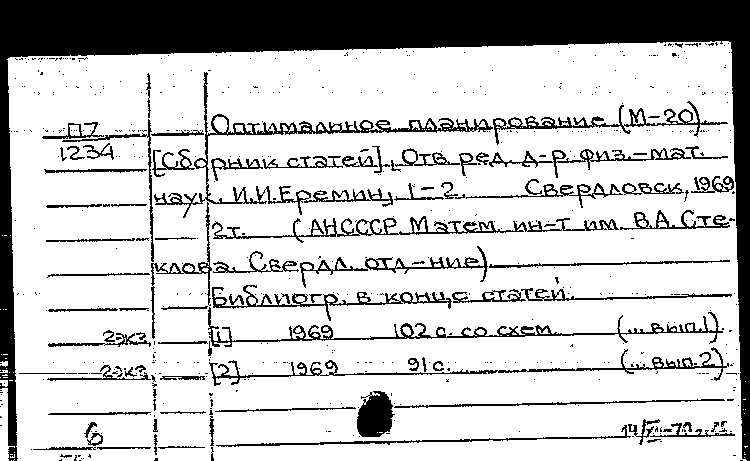 П7
1234
Оптимальное планирование (М-20).
[Сборник статей]. Отв. ред. д-р. физ.-мат.
наук. И.И.Еремин, 1-2. Свердловск, 1969
2т. (АНСССР. Матем. ин-т им. В.А. Сте-
клова. Свердл. отд-ние).
Библиогр. в конце статей.
2экз [1] 1969 102 с. со схем. (... вып.1).
2экз. [2] 1969 91 с. (... вып.2).
6